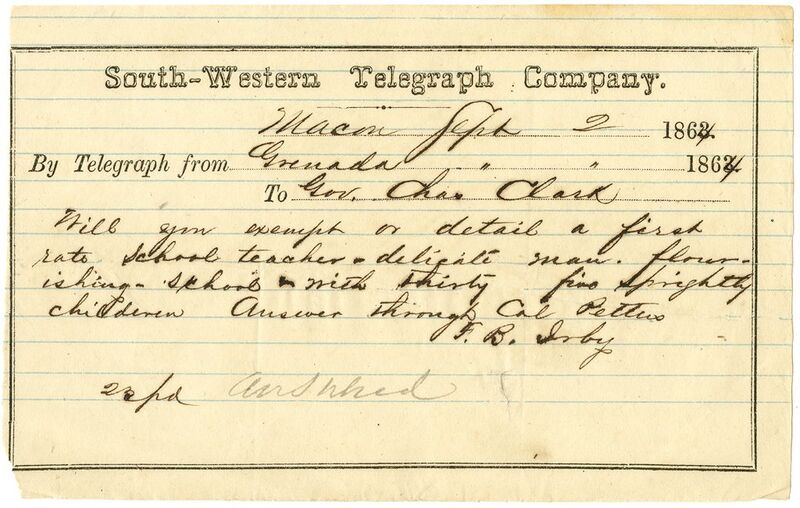 South-Western Telegraph Company.
Macon Sept 2 1864.
By Telegraph from Grenada " " 1864
To Gov. Chas Clark
Will you exempt or detail a first
rate school teacher - deligate man. flour-
ishing - school - with thirty five sprightly
childeren Answer through Col Pettus
F. B. Irby
23 pd